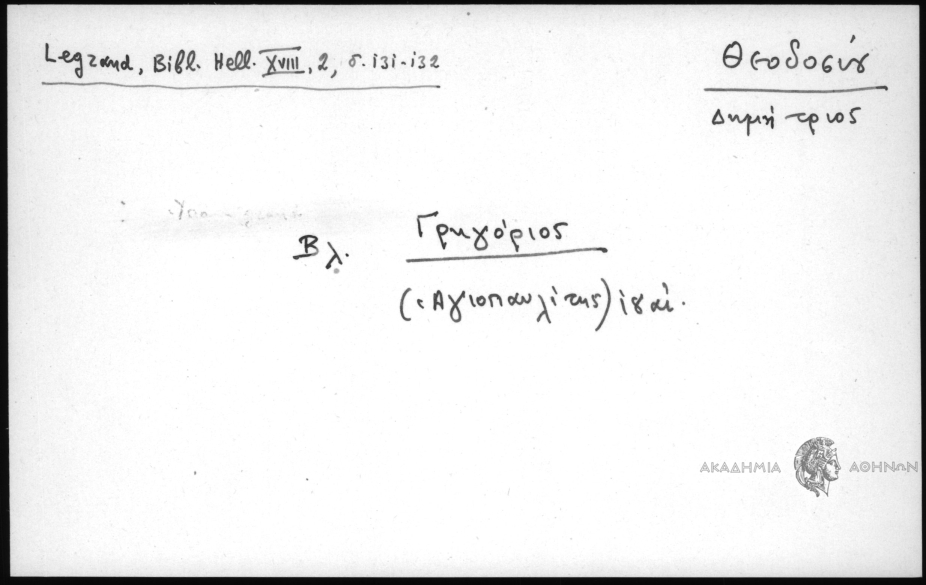 Legrand, Bibl. Hell. XVIII, 2, σ. 131-132
Θεοδοσίου
Δημήτριος
Βλ. Γρηγόριος
(Ἁγιοπαυλίτης)
ΑΚΑΔΗΜΙΑ ΑΘΗΝΩΝ